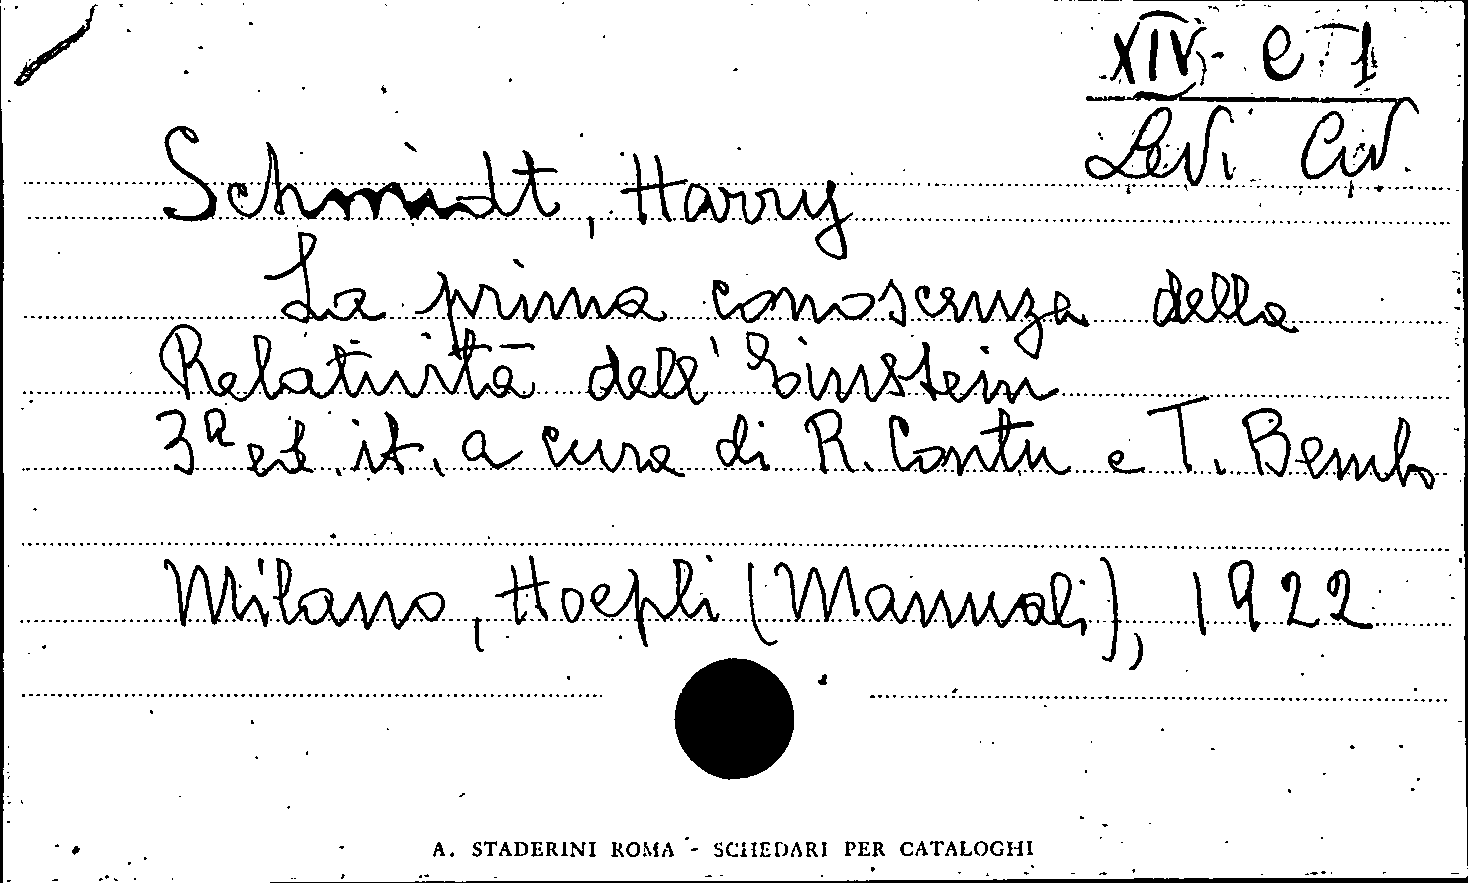 XIV - C 1
Levi Civ.
Schmidt, Harry
La prima conoscenza della
Relatività dell' Einstein
3ª ed. it. a cura di R. Contu e T. Bembo
Milano, Hoepli (Manuali), 1922
A. STADERINI ROMA - SCHEDARI PER CATALOGHI